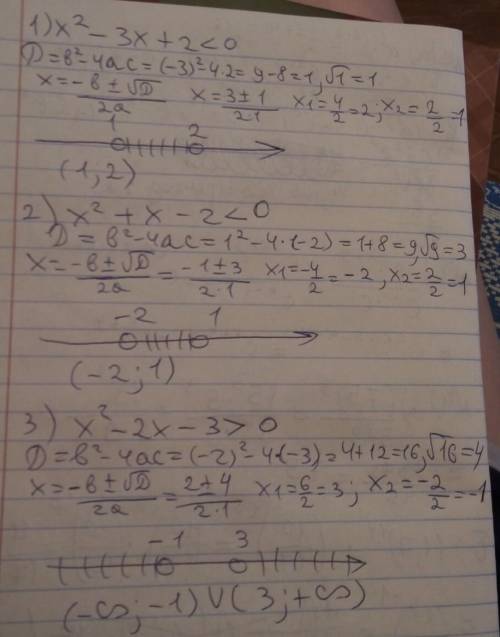 1) x² - 3x + 2 < 0
D = b² - 4ac = (-3)² - 4·2 = 9 - 8 = 1, √1 = 1
x = (-b ± √D)/2a x = (3 ± 1)/2·1 x₁ = 4/2 = 2; x₂ = 2/2 = 1
1 2
(1, 2)
2) x² + x - 2 < 0
D = b² - 4ac = 1² - 4·(-2) = 1 + 8 = 9, √9 = 3
x = (-b ± √D)/2a = (-1 ± 3)/2·1 x₁ = -4/2 = -2, x₂ = 2/2 = 1
-2 1
(-2; 1)
3) x² - 2x - 3 > 0
D = b² - 4ac = (-2)² - 4·(-3) = 4 + 12 = 16, √16 = 4
x = (-b ± √D)/2a = (2 ± 4)/2·1 x₁ = 6/2 = 3; x₂ = -2/2 = -1
-1 3
(-∞; -1) ∪ (3; +∞)